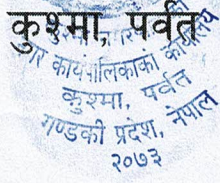 कुश्मा, पर्वत
गर कार्यपालिकाको कार्यालय
कुश्मा, पर्वत
गण्डकी प्रदेश, नेपाल
२०७३